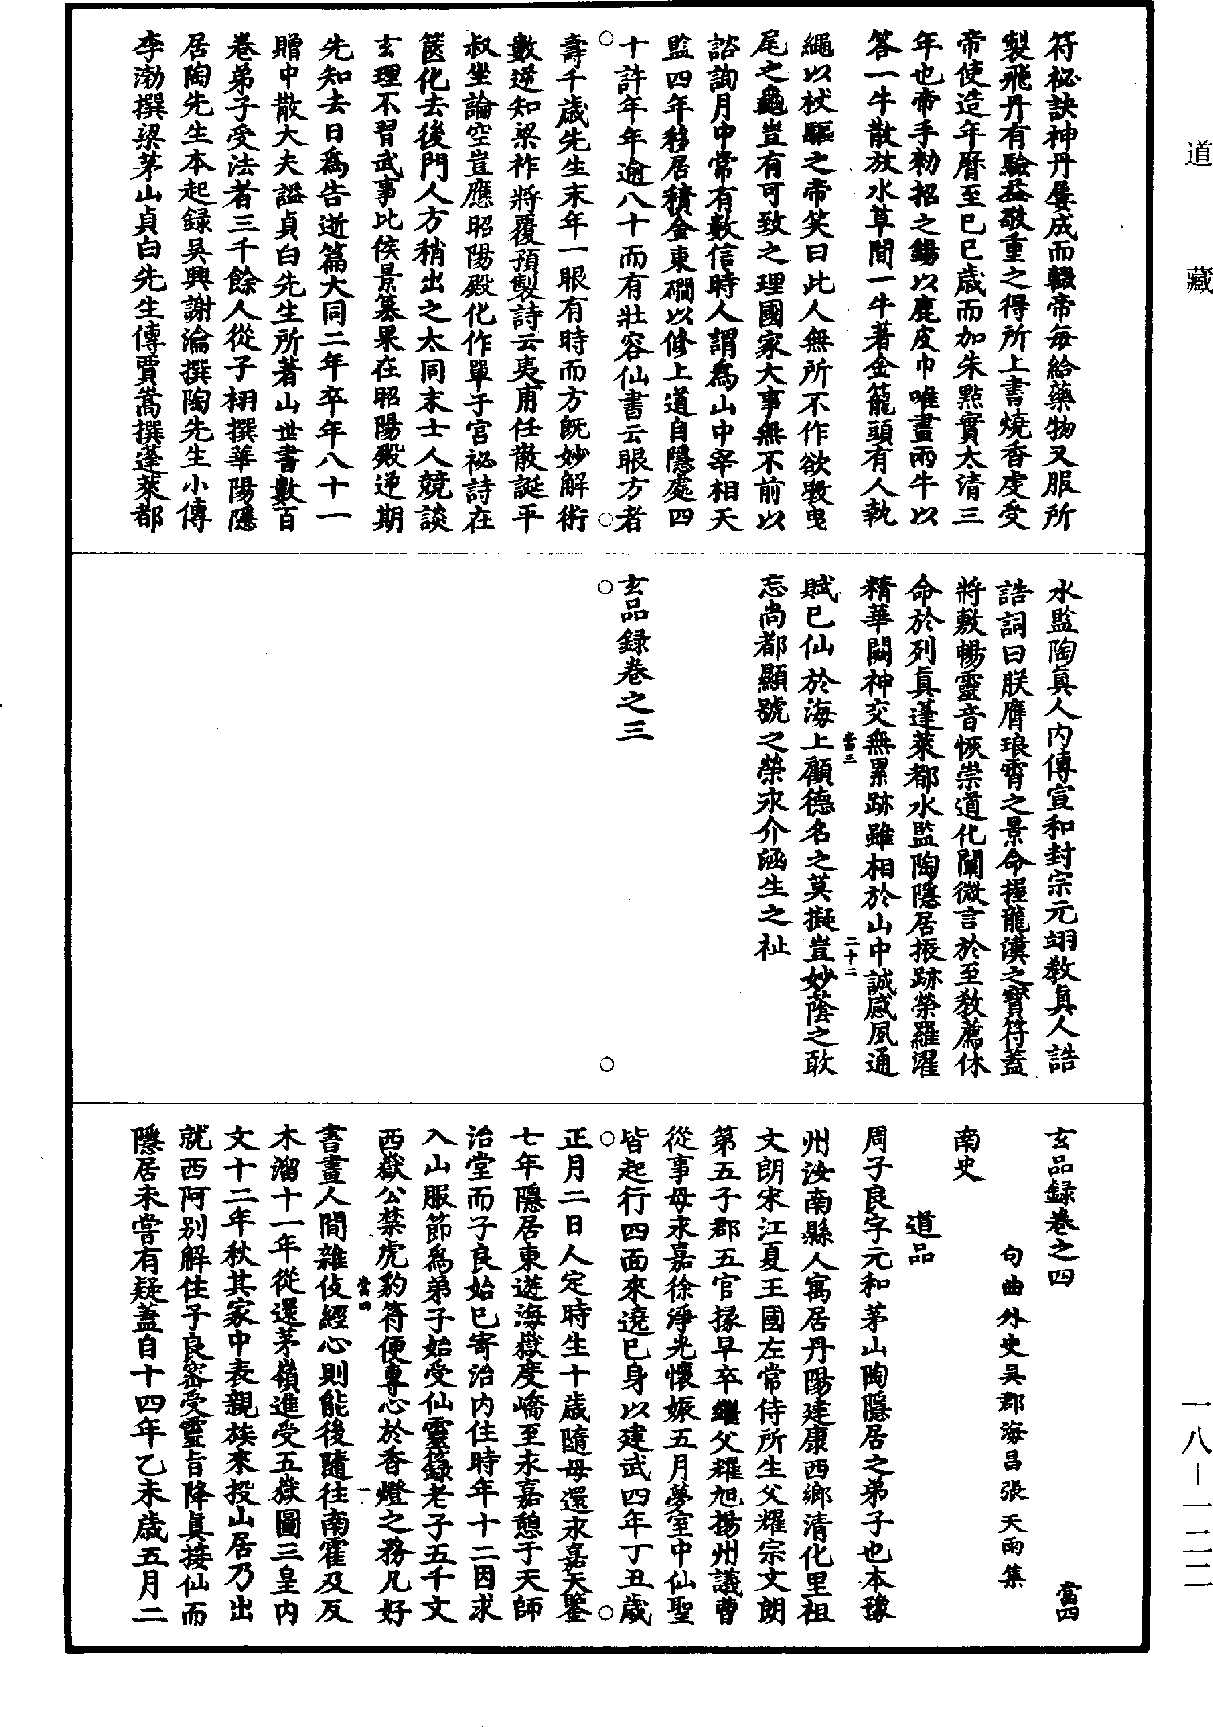 道藏
符祕訣神丹屢成而輟帝每給藥物又服所
製飛丹有驗益敬重之得所上書燒香虔受
帝使造年曆至已巳歲而加朱點實太清三
年也帝手勑招之錫以鹿皮巾唯畫兩牛以
荅一牛散放水草間一牛著金籠頭有人執
繩以杖驅之帝笑曰此人無所不作欲斆曳
尾之龜豈有可致之理國家大事無不前以
諮詢月中常有數信時人謂爲山中宰相天
監四年移居積金東磵以修上道自隱處四
十許年年逾八十而有壯容仙書云眼方者
壽千歲先生末年一眼有時而方旣妙解術
數逆知梁祚將覆預製詩云夷甫任散誕平
叔坐論空豈應昭陽殿化作單于宮祕詩在
篋化去後門人方稍出之太同末士人競談
玄理不習武事比侯景簒果在昭陽殿逆期
先知去日爲告逝篇大同二年卒年八十一
贈中散大夫謚貞白先生所著山世書數百
卷弟子受法者三千餘人從子栩撰華陽隱
居陶先生本起録吳興謝瀹撰陶先生小傳
李渤撰梁茅山貞白先生傳賈嵩撰蓬萊都
水監陶真人內傳宣和封宗元翊教真人誥
誥詞曰朕膺琅霄之景命握龍漢之寶符蓋
將敷暢靈音恢崇道化闡微言於至教薦休
命於列真蓬萊都水監陶隱居振跡榮羅濯
精華闕神交無累跡雖相於山中誠感夙通
當三
二十二
賦已仙於海上顧德名之莫擬豈妙蔭之敢
忘尚都顯號之榮永介涵生之祉
玄品録卷之三
玄品録卷之四
當四
句曲外史吳郡海昌張天雨集
南史
道品
周子良字元和茅山陶隱居之弟子也本豫
州汝南縣人寓居丹陽建康西鄉清化里祖
文朗宋江夏王國左常侍所生父耀宗文朗
第五子郡五官掾早卒繼父耀旭揚州議曹
從事母永嘉徐淨光懷娠五月夢室中仙聖
皆起行四面來遶巳身以建武四年丁丑歲
正月二日人定時生十歲隨母還永嘉天監
七年隱居東遊海嶽度嶠至永嘉憩于天師
治堂而子良始已寄治內住時年十二因求
入山服節爲弟子始受仙靈籙老子五千文
西嶽公禁虎豹符便專心於香燈之務凡好
當四
一
書畫人間雜伎經心則能後隨往南霍及反
木溜十一年從還茅嶺進受五嶽圖三皇內
文十二年秋其家中表親族來投山居乃出
就西阿別解住子良密受靈旨降真接仙而
隱居未嘗有疑蓋自十四年乙未歲五月二
一八－一二二